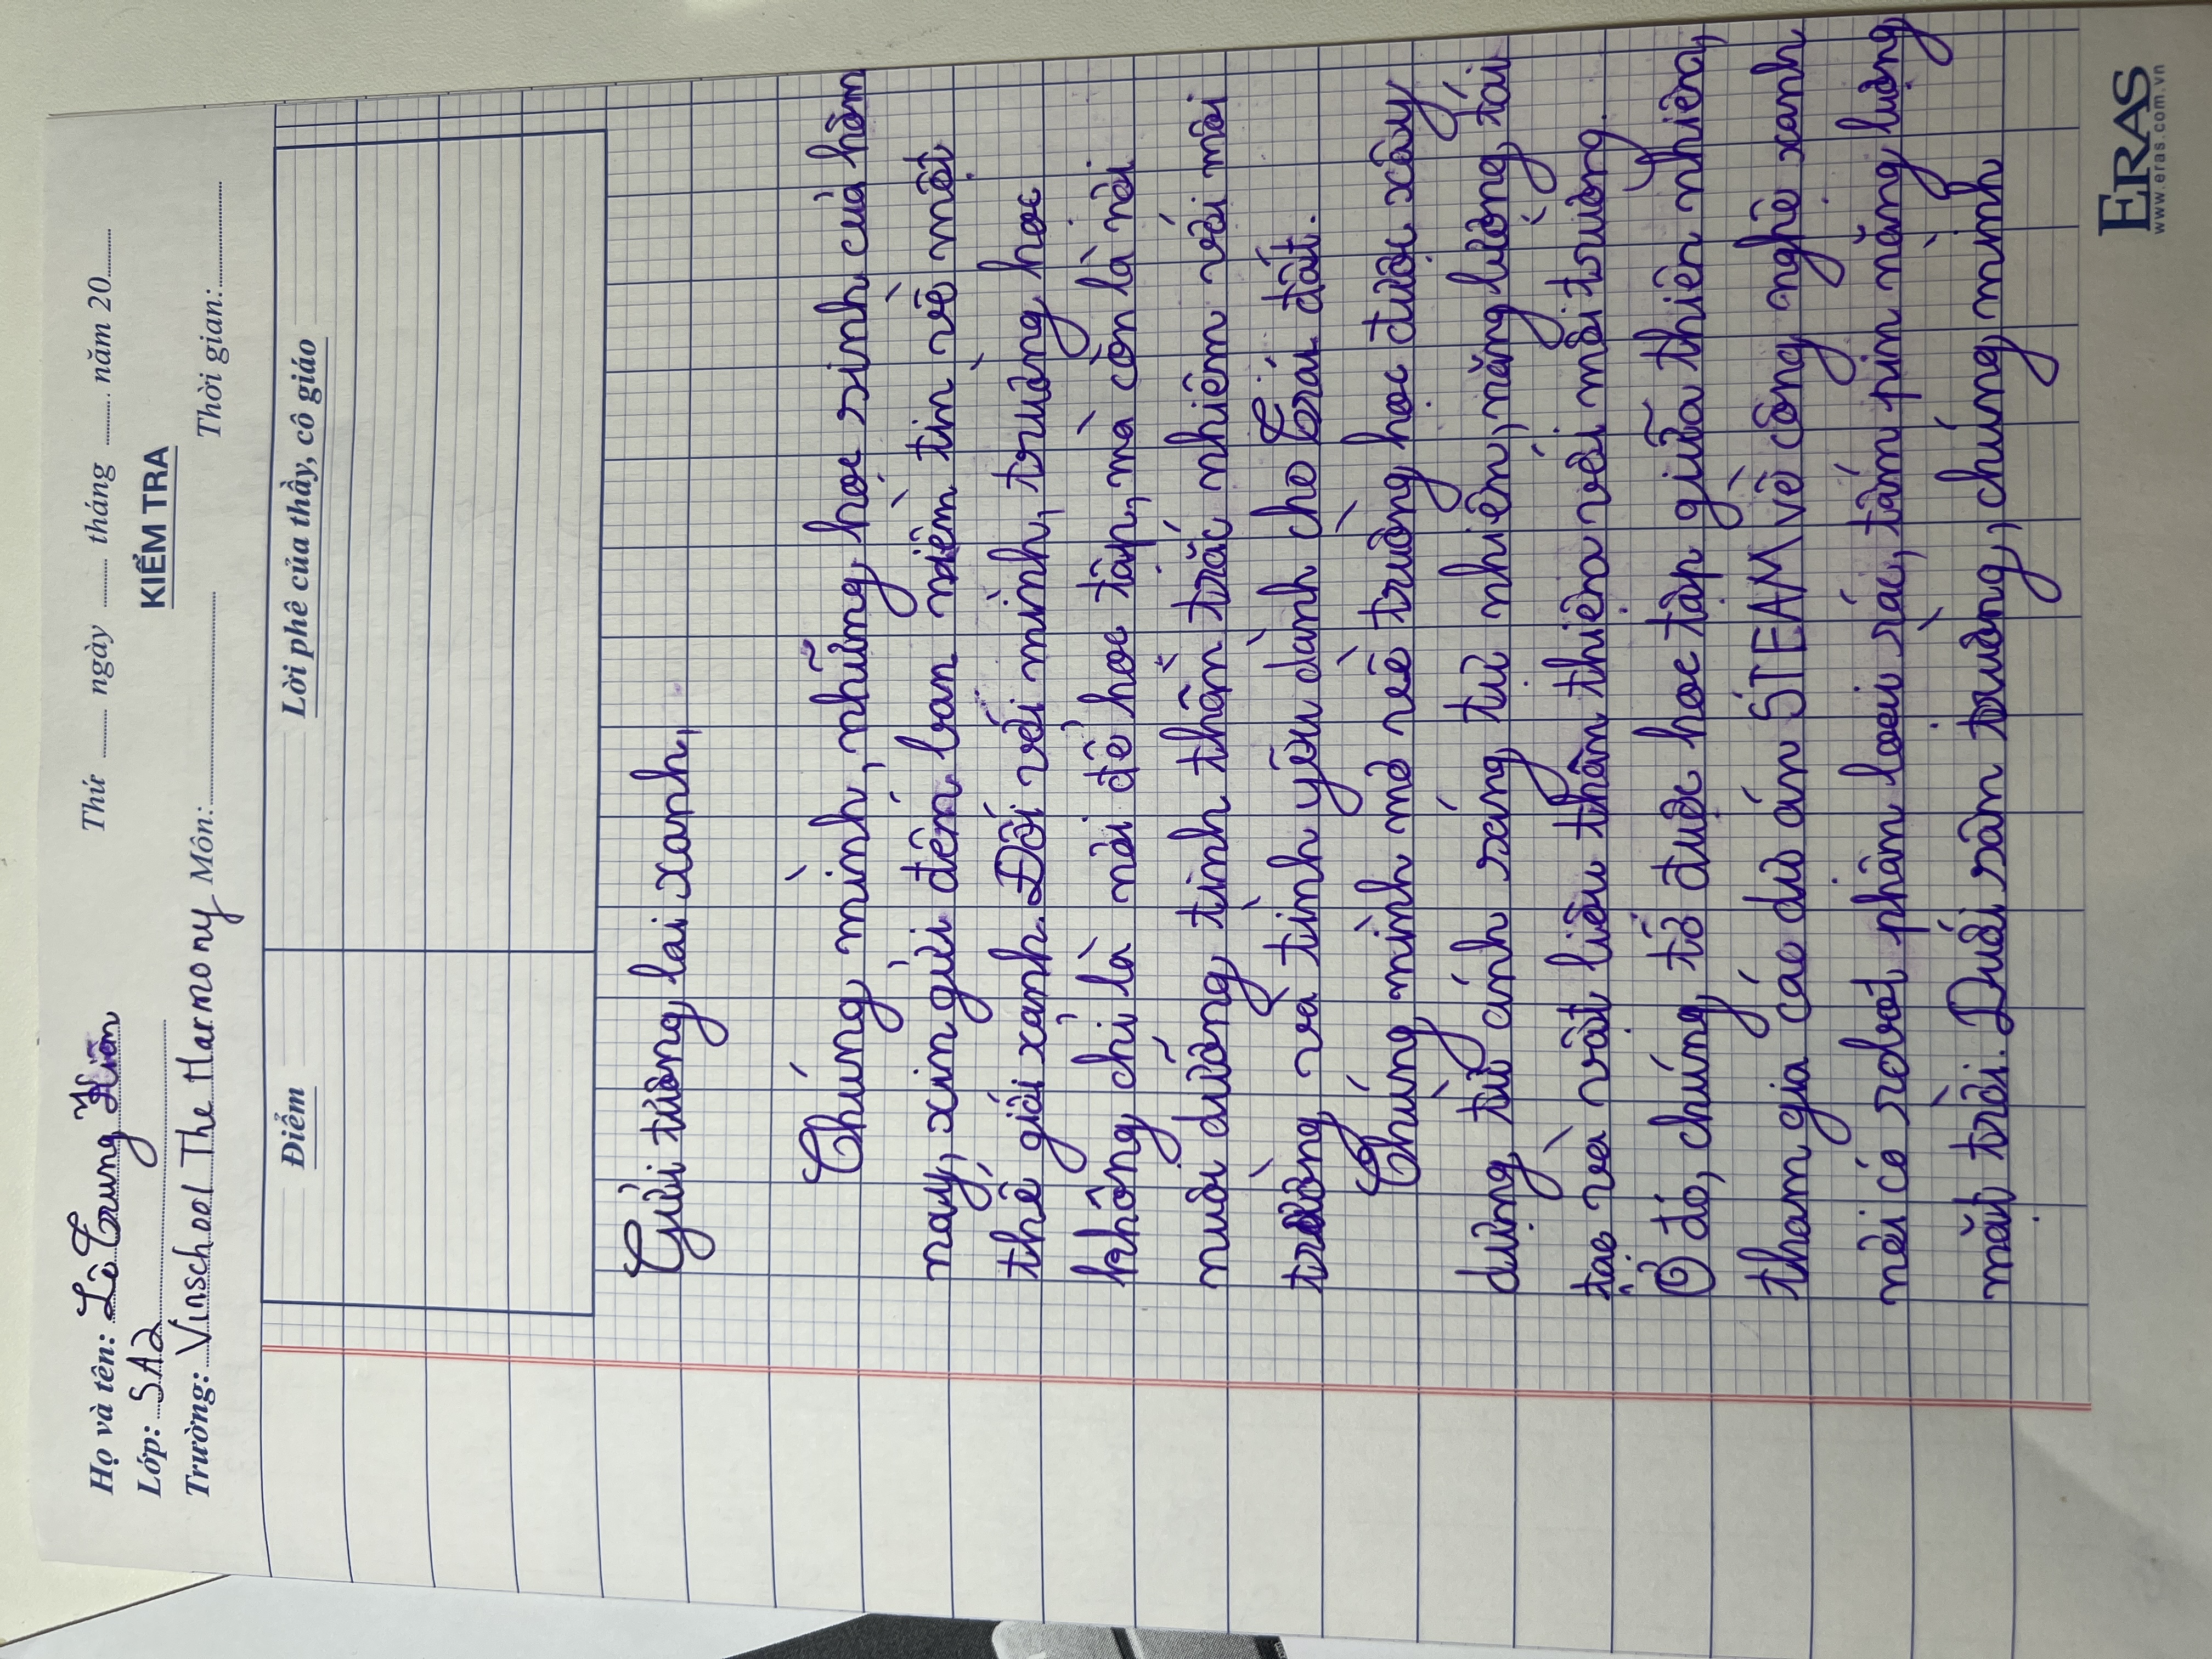 Thứ ...... ngày ...... tháng ...... năm 20......
Họ và tên: Lê Trung Hiền
KIỂM TRA
Lớp: 5A2
Trường: Vinschool The Harmony Môn: ........................ Thời gian: ............
Điểm
Lời phê của thầy, cô giáo
Gửi tương lai xanh,
Chúng mình, những học sinh của hôm
nay, xin gửi đến bạn niềm tin về một
thế giới xanh. Đối với mình, trường học
không chỉ là nơi để học tập, mà còn là nơi
nuôi dưỡng tinh thần trắc nhiệm với môi
trường và tình yêu dành cho Trái đất.
Chúng mình mơ về trường học được xây
dựng từ ánh sáng tự nhiên, năng lượng tái
tạo và vật liệu thân thiện với môi trường.
Ở đó, chúng tớ được học tập giữa thiên nhiên,
tham gia các dự án STEAM về công nghệ xanh
nơi có robot phân loại rác, tấm pin năng lượng
mặt trời. Dưới sân trường, chúng mình
ERAS
www.eras.com.vn